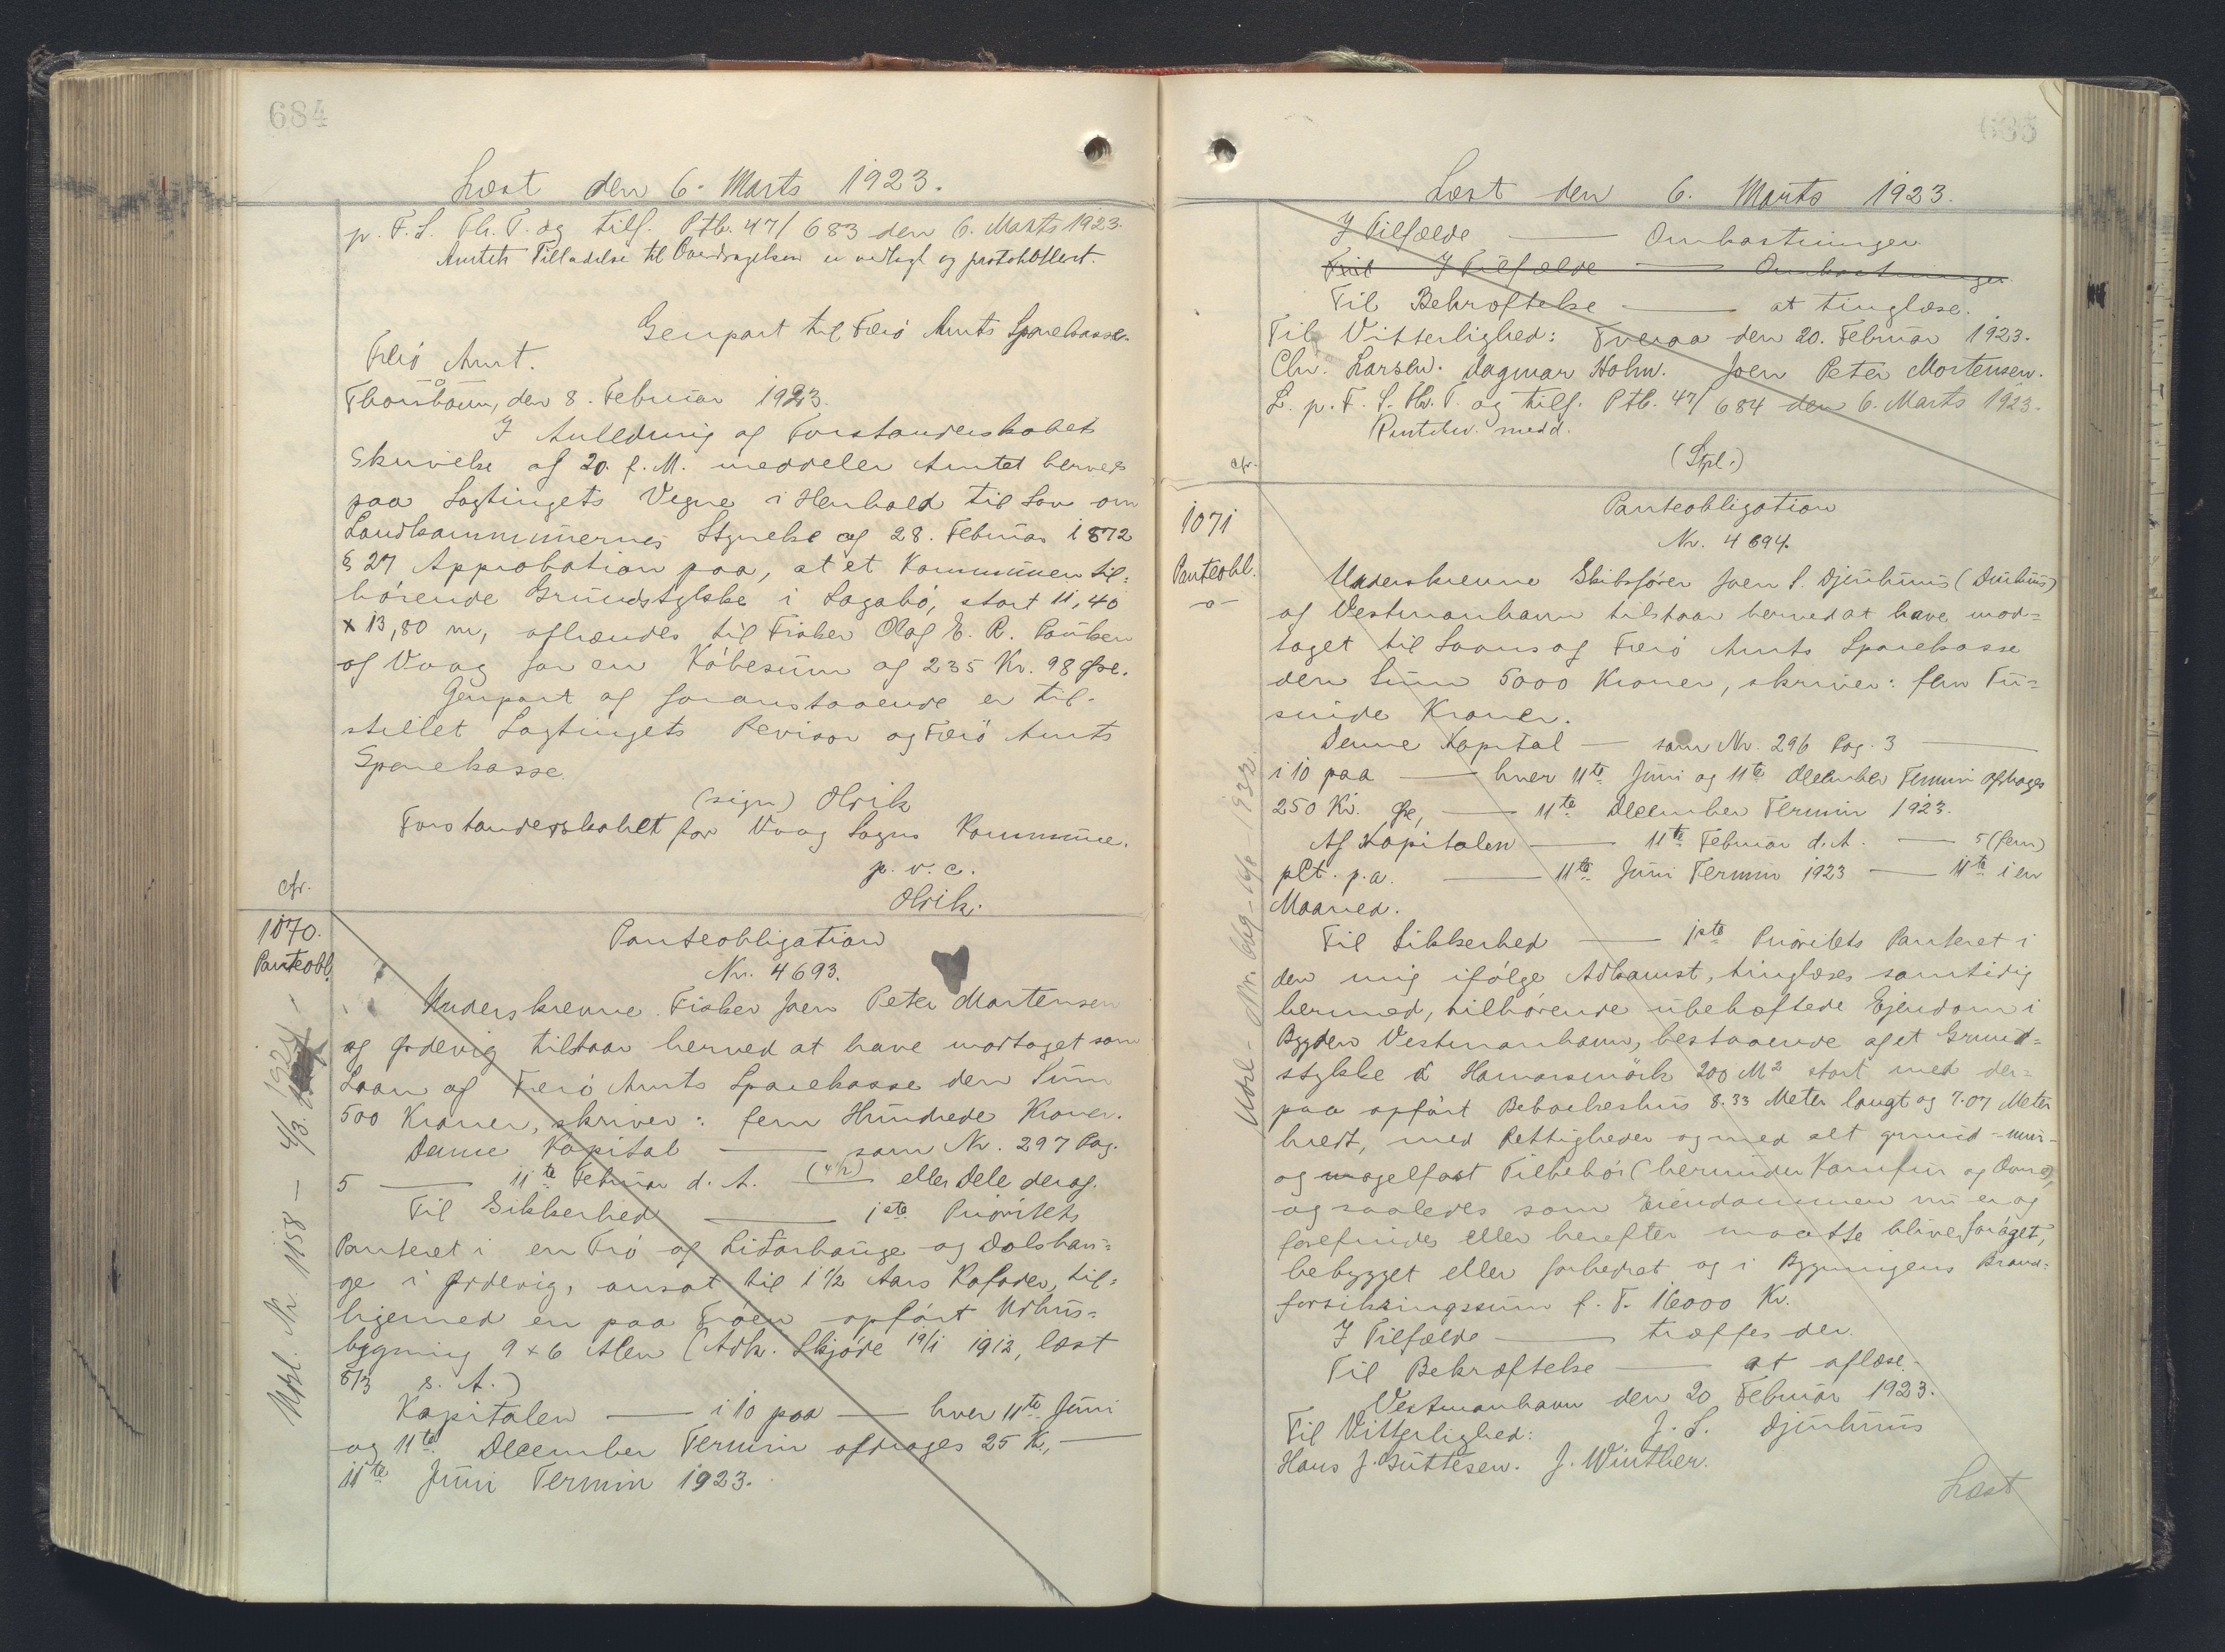 684
Læst den 6. Marts 1923.
p. F. S. Th. T. og tilf. Ptb. 47/683 den 6. Marts 1923.
Amtets Tilladelse til Overdragelsen er vedlagt og protokolleret.
Genpart til Færö Amts Sparekasse.
Færö Amt.
Thorshavn, den 8. Februar 1923.
I Anledning af Forstanderskabets
Skrivelse af 20. f. M. meddeler Amtet herved
paa Lagtingets Vegne i Henhold til Lov om
Landkommunernes Styrelse af 28. Februar 1872
§ 27 Approbation paa, at et Kommunen til=
hörende Grundstykke i Lagabö, stort 11,40
x 13,80 m, afhændes til Fisker Olaf E. R. Poulsen
af Vaag for en Köbesum af 235 Kr. 98 Øre.
Genpart af foranstaaende er til-
stillet Lagtingets Revisor og Færö Amts
Sparekasse.
(sign) Olrik
Forstanderskabet for Vaag Sogns Kommune.
p. v. c.
Olrik.
cfr.
1070.
Panteobl.
Panteobligation
Nr. 4693.
Underskrevne Fisker Joen Peter Mortensen
af Ørdevig tilstaar herved at have modtaget som
Laan af Færö Amts Sparekasse den Sum
500 Kroner, skriver: fem Hundrede Kroner.
Denne Kapital — som Nr. 297 Pag.
5 — 11te Februar d. A. (4½) eller Dele deraf.
Til Sikkerhed — 1ste Prioritets
Panteret i en Trö af Lidarhauge og Dalshau=
ge i Ørdevig, ansat til 1 1/2 Aars Kofoder, til=
ligemed en paa Tröen opfört Udhus=
bygning 9 x 6 Alen (Adk. Skjöde 19/1 1912, læst
5/3 s. A.)
Kapitalen — i 10 paa — hver 11te Juni
og 11te December Termin afdrages 25 Kr, —
11te Juni Termin 1923.
Udsl. Nr. 1158 — 4/3. 1924 -
685
Læst den 6. Marts 1923.
I Tilfælde — Omkostninger.
Til I Tilfælde — Omkostninger
Til Bekræftelse — at tinglæse.
Til Vitterlighed: Tveraa den 20. Februar 1923.
Chr. Larsen. Dagmar Holm. Joen Peter Mortensen.
L. p. F. S. Th. T. og tilf. Ptb. 47/684 den 6. Marts 1923.
Panteh. medd.
(Stpl.)
cfr.
1071
Panteobl.
-o-
Panteobligation
Nr. 4694.
Underskrevne Skibsförer Joen S. Djurhuus (Durhuus)
af Vestmanhavn tilstaar herved at have mod=
taget til Laans af Færö Amts Sparekasse
den Sum 5000 Kroner, skriver: fem Tu=
sinde Kroner.
Denne Kapital — som Nr. 296 Pag. 3 —
i 10 paa — hver 11te Juni og 11te December Termin afdrages
250 Kr. Øre, — 11te December Termin 1923.
Af Kapitalen — 11te Februar d. A. — 5 (fem)
pCt. p.a. — 11te Juni Termin 1923 — 11te i en
Maaned.
Til Sikkerhed — 1ste Prioritets Panteret i
den mig ifölge Adkomst, tinglæses samtidig
hermed, tilhörende ubehæftede Ejendom i
Bygden Vestmanhavn, bestaaende af et Grund=
stykke á Hamarsmörk 200 M² stort med der=
paa opfört Beboelseshus 8.33 Meter langt og 7.07 Meter
bredt, med Rettigheder og med alt grund-mur-
og nagelfast Tilbehör (herunder Komfur og Ovne),
og saaledes som Ejendommen nu er og
forefindes eller herefter maatte blive foröget,
bebygget eller forbedret og i Bygningens Brand=
forsikringssum f. T. 16000 Kr.
I Tilfælde — træffes der.
Til Bekræftelse — at aflæse.
Vestmanhavn den 20 Februar 1923.
Til Vitterlighed: J. S. Djurhuus
Hans J. Guttesen. J. Winther.
Læst